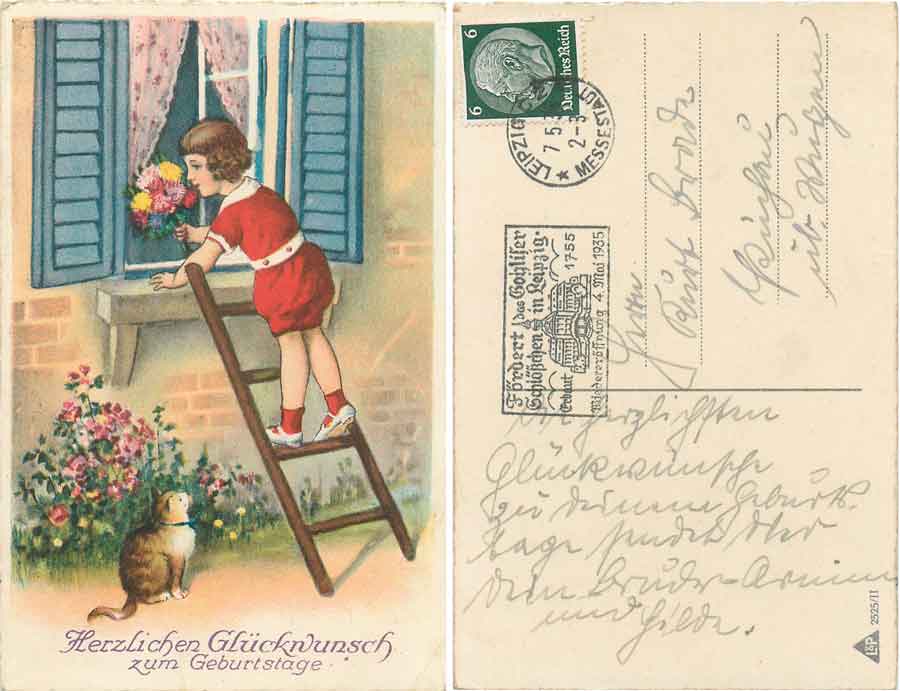 Herzlichen Glückwunsch
zum Geburtstage.
6 6
Deutsches Reich
LEIPZIG
7 5 3
2-3
MESSESTADT
Fördert das Gohliser
Schlößchen in Leipzig.
Erbaut 1755
Wiedereröffnung 4. Mai 1935
Herrn
Kurt
üb. Wurzen
Die herzlichsten
Glückwünsche
zu deinem Geburts-
tage sendet dir
dein Bruder Armin
und Hilde.
2525/II
L&P